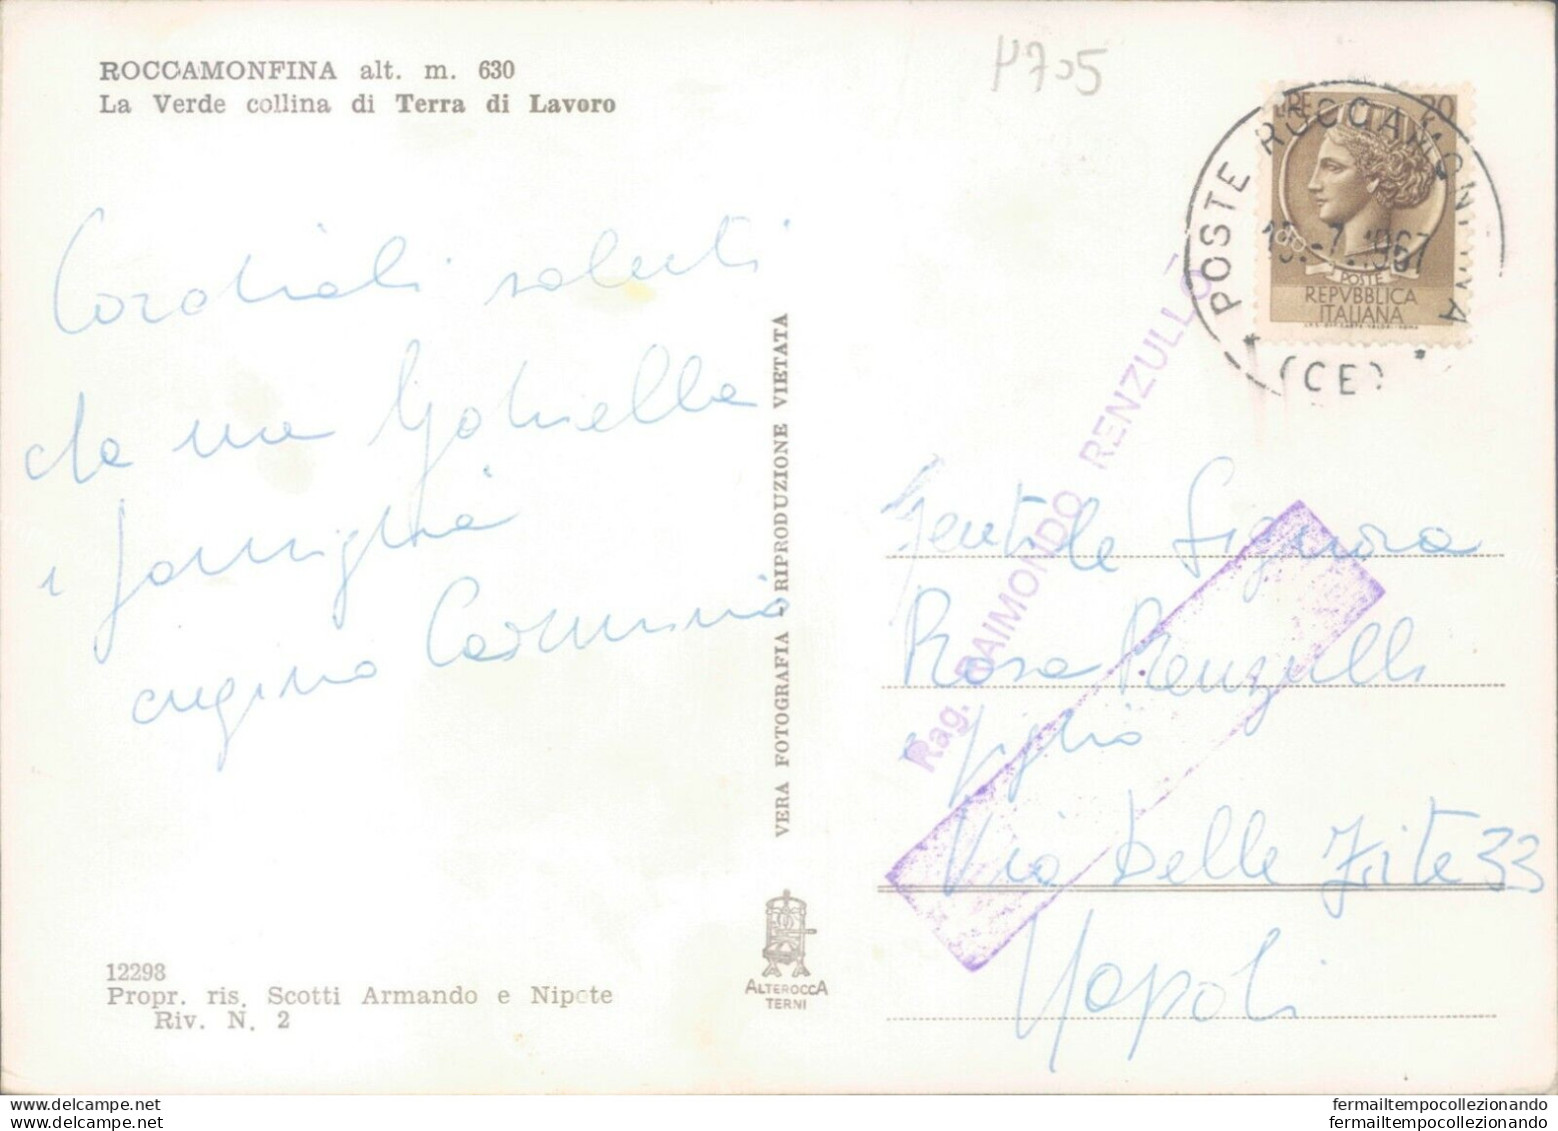 ROCCAMONFINA alt. m. 630
La Verde collina di Terra di Lavoro
Cordiali saluti
da me Gabriella
e famiglia
cugino Carmine
12298
Propr. ris. Scotti Armando e Nipote
Riv. N. 2
VERA FOTOGRAFIA - RIPRODUZIONE VIETATA
ALTEROCCA
TERNI
POSTE ROCCAMONFINA
-7.1967
(CE)
LIRE 20
POSTE
REPVBBLICA
ITALIANA
Rag. RAIMONDO RENZULLO
Gentile Signora
Rosa Renzulli
e figlio
Via Delle Zite 33
Napoli
fermailtempocollezionando.com
https://www.delcampe.net
fermailtempocollezionando
fermailtempocollezionando